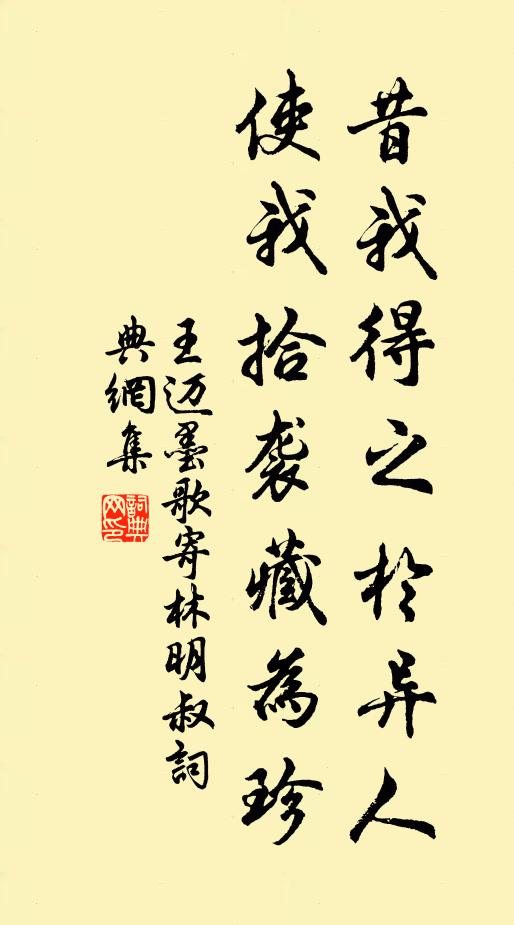 昔我得之於异人
使我拾袭藏為珍
王迈墨歌寄林明叔詞
典網集
詞典
网印